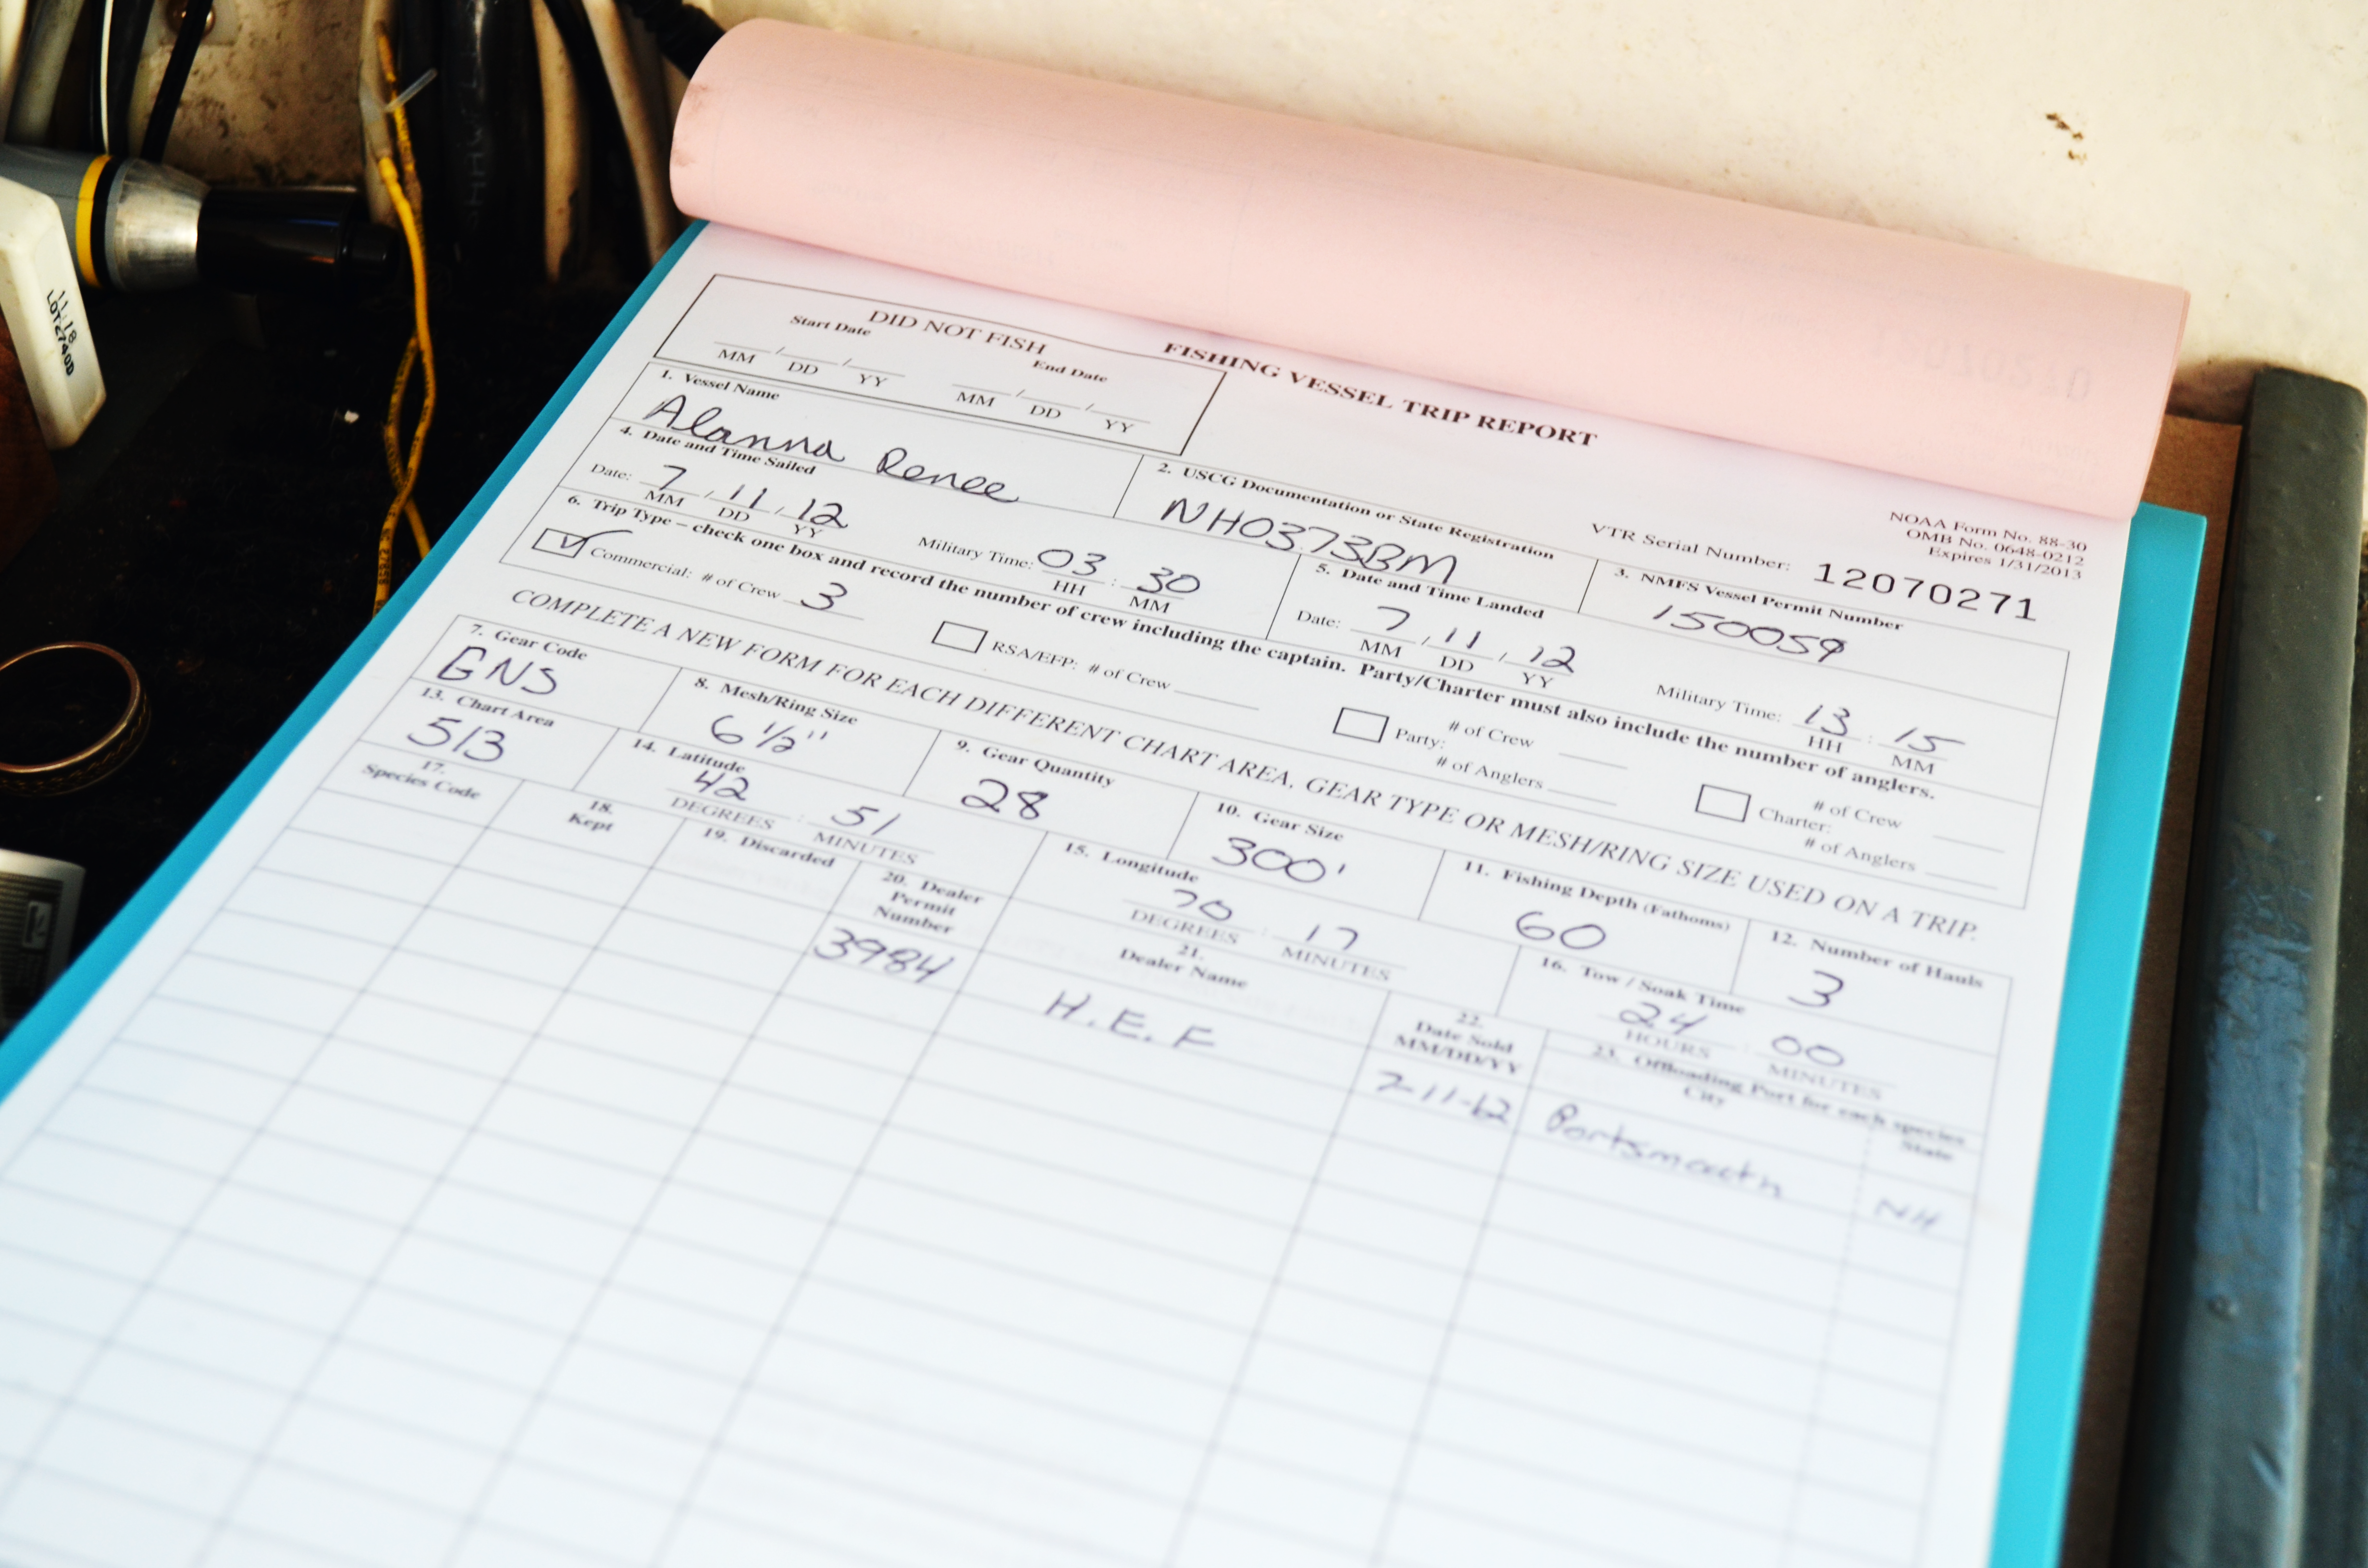 11.18
LOT2740D
DID NOT FISH
Start Date
End Date
MM / DD / YY
MM / DD / YY
FISHING VESSEL TRIP REPORT
NOAA Form No. 88-30
OMB No. 0648-0212
Expires 1/31/2013
VTR Serial Number: 12070271
1. Vessel Name
Alanna Renee
2. USCG Documentation or State Registration
NH0373BM
3. NMFS Vessel Permit Number
150059
4. Date and Time Sailed
Date: 7 / 11 / 12
MM DD YY
Military Time: 03 : 30
HH MM
5. Date and Time Landed
Date: 7 / 11 / 12
MM DD YY
Military Time: 13 : 15
HH MM
6. Trip Type – check one box and record the number of crew including the captain. Party/Charter must also include the number of anglers.
Commercial: # of Crew 3
RSA/EFP: # of Crew
Party:
# of Crew
# of Anglers
Charter:
# of Crew
# of Anglers
COMPLETE A NEW FORM FOR EACH DIFFERENT CHART AREA, GEAR TYPE OR MESH/RING SIZE USED ON A TRIP.
7. Gear Code
GNS
8. Mesh/Ring Size
6 1/2"
9. Gear Quantity
28
10. Gear Size
300'
11. Fishing Depth (Fathoms)
60
12. Number of Hauls
3
13. Chart Area
513
14. Latitude
42 : 51
DEGREES MINUTES
15. Longitude
70 : 17
DEGREES MINUTES
16. Tow / Soak Time
24 : 00
HOURS MINUTES
17.
Species Code
18.
Kept
19. Discarded
20. Dealer
Permit
Number
21.
Dealer Name
22.
Date Sold
MM/DD/YY
23. Offloading Port for each species
City
State
3984
H.E.F
7-11-12
Portsmouth
NH